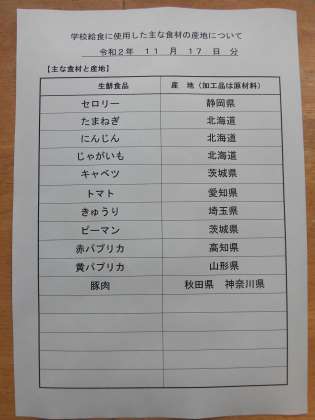 学校給食に使用した主な食材の産地について
令和２年　１１　月　１７　日　分
【主な食材と産地】
生鮮食品　産　地（加工品は原材料）
セロリー　静岡県
たまねぎ　北海道
にんじん　北海道
じゃがいも　北海道
キャベツ　茨城県
トマト　愛知県
きゅうり　埼玉県
ピーマン　茨城県
赤パプリカ　高知県
黄パプリカ　山形県
豚肉　秋田県　神奈川県